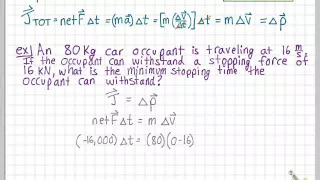 J⃗TOT = netF⃗Δt = (ma⃗)Δt = [m(Δv⃗/Δt)]Δt = mΔv⃗ = Δp⃗
ex) An 80 Kg car occupant is traveling at 16 m/s.
If the occupant can withstand a stopping force of
16 KN, what is the minimum stopping time the
occupant can withstand?
J⃗ = Δp⃗
netF⃗Δt = mΔv⃗
(-16,000)Δt = (80)(0-16)